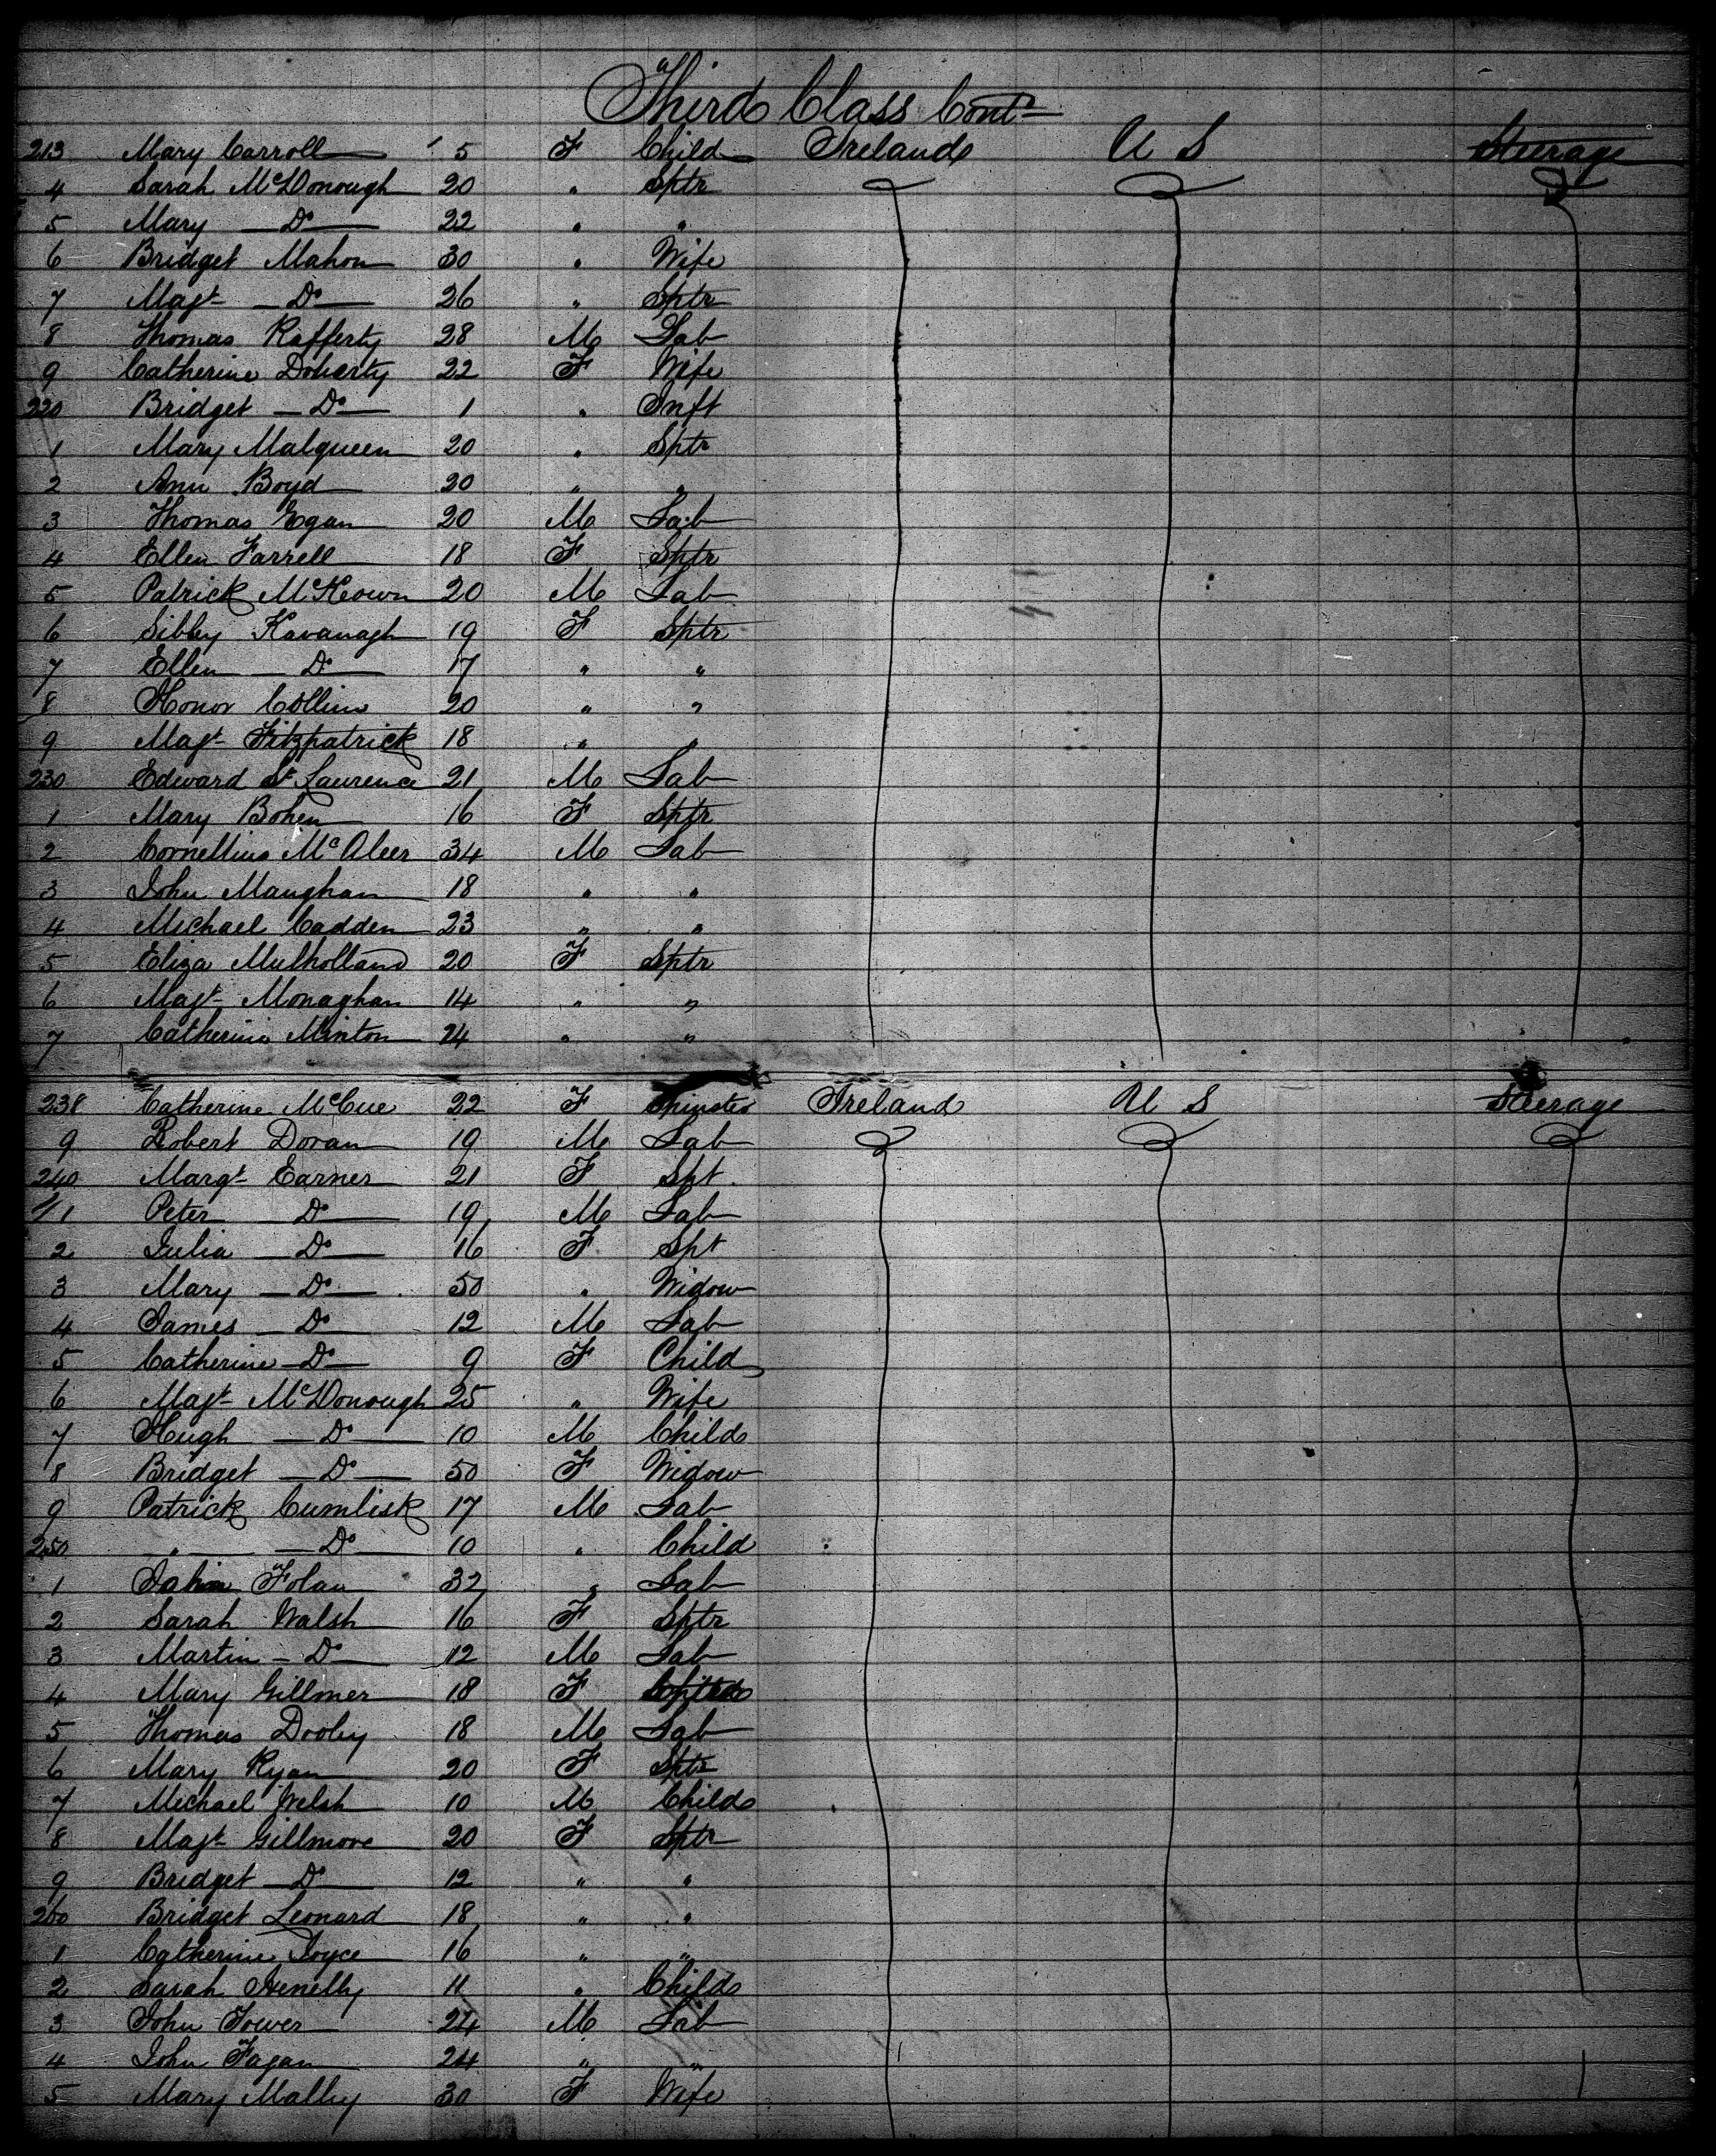 Third Class Cont
213 Mary Carroll 5 F Child Ireland U S Steerage
4 Sarah McDonough 20 " Sptr
5 Mary — Do — 22 " "
6 Bridget Mahon 30 " Wife
7 Magt — Do — 26 " Sptr
8 Thomas Rafferty 28 M Lab
9 Catherine Doherty 22 F Wife
220 Bridget — Do — 1 " Inft
1 Mary Malqueen 20 " Sptr
2 Ann Boyd 20 " "
3 Thomas Egan 20 M Lab
4 Ellen Farrell 18 F Sptr
5 Patrick McKeown 20 M Lab
6 Sibby Kavanagh 19 F Sptr
7 Ellen — Do 17 " "
8 Honor Collins 20 " "
9 Magt Fitzpatrick 18 " "
230 Edward St Lawrence 21 M Lab
1 Mary Bohen 16 F Sptr
2 Cornellius McAleer 34 M Lab
3 John Maughan 18 " "
4 Michael Cadden 23 " "
5 Eliza Mulholland 20 F Sptr
6 Magt Monaghan 14 " "
7 Catherine Minton 24 " "
238 Catherine McCue 22 F Spinster Ireland U S Steerage
9 Robert Doran 19 M Lab
240 Margt Earner 21 F Spt
1 Peter — Do — 19 M Lab
2 Julia — Do — 16 F Spt
3 Mary — Do — 50 " Widow
4 James — Do — 12 M Lab
5 Catherine — Do — 9 F Child
6 Magt McDonough 25 " Wife
7 Hugh — Do — 10 M Child
8 Bridget — Do — 50 F Widow
9 Patrick Cumlisk 17 M Lab
250 — " — Do — 10 " Child
1 John Folan 32 " Lab
2 Sarah Walsh 16 F Sptr
3 Martin — Do — 12 M Lab
4 Mary Gillmer 18 F
5 Thomas Dooley 18 M Lab
6 Mary Ryan 20 F Sptr
7 Michael Welsh 10 M Child
8 Magt Gillmore 20 F Sptr
9 Bridget — Do 12 " "
260 Bridget Leonard 18 " "
1 Catherine Joyce 16 " "
2 Sarah 11 " Child
3 John Tower 24 M Lab
4 John Fagan 24 " "
5 Mary Malley 30 F Wife